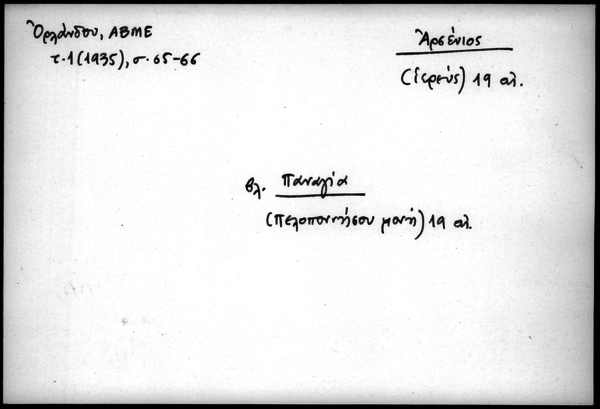 Ὀρλάνδου, ΑΒΜΕ
τ.1 (1935), σ. 65-66
Ἀρσένιος
(ἱερεύς) 19 αι.
βλ. Παναγία
(Πελοποννήσου μονή) 19 αι.